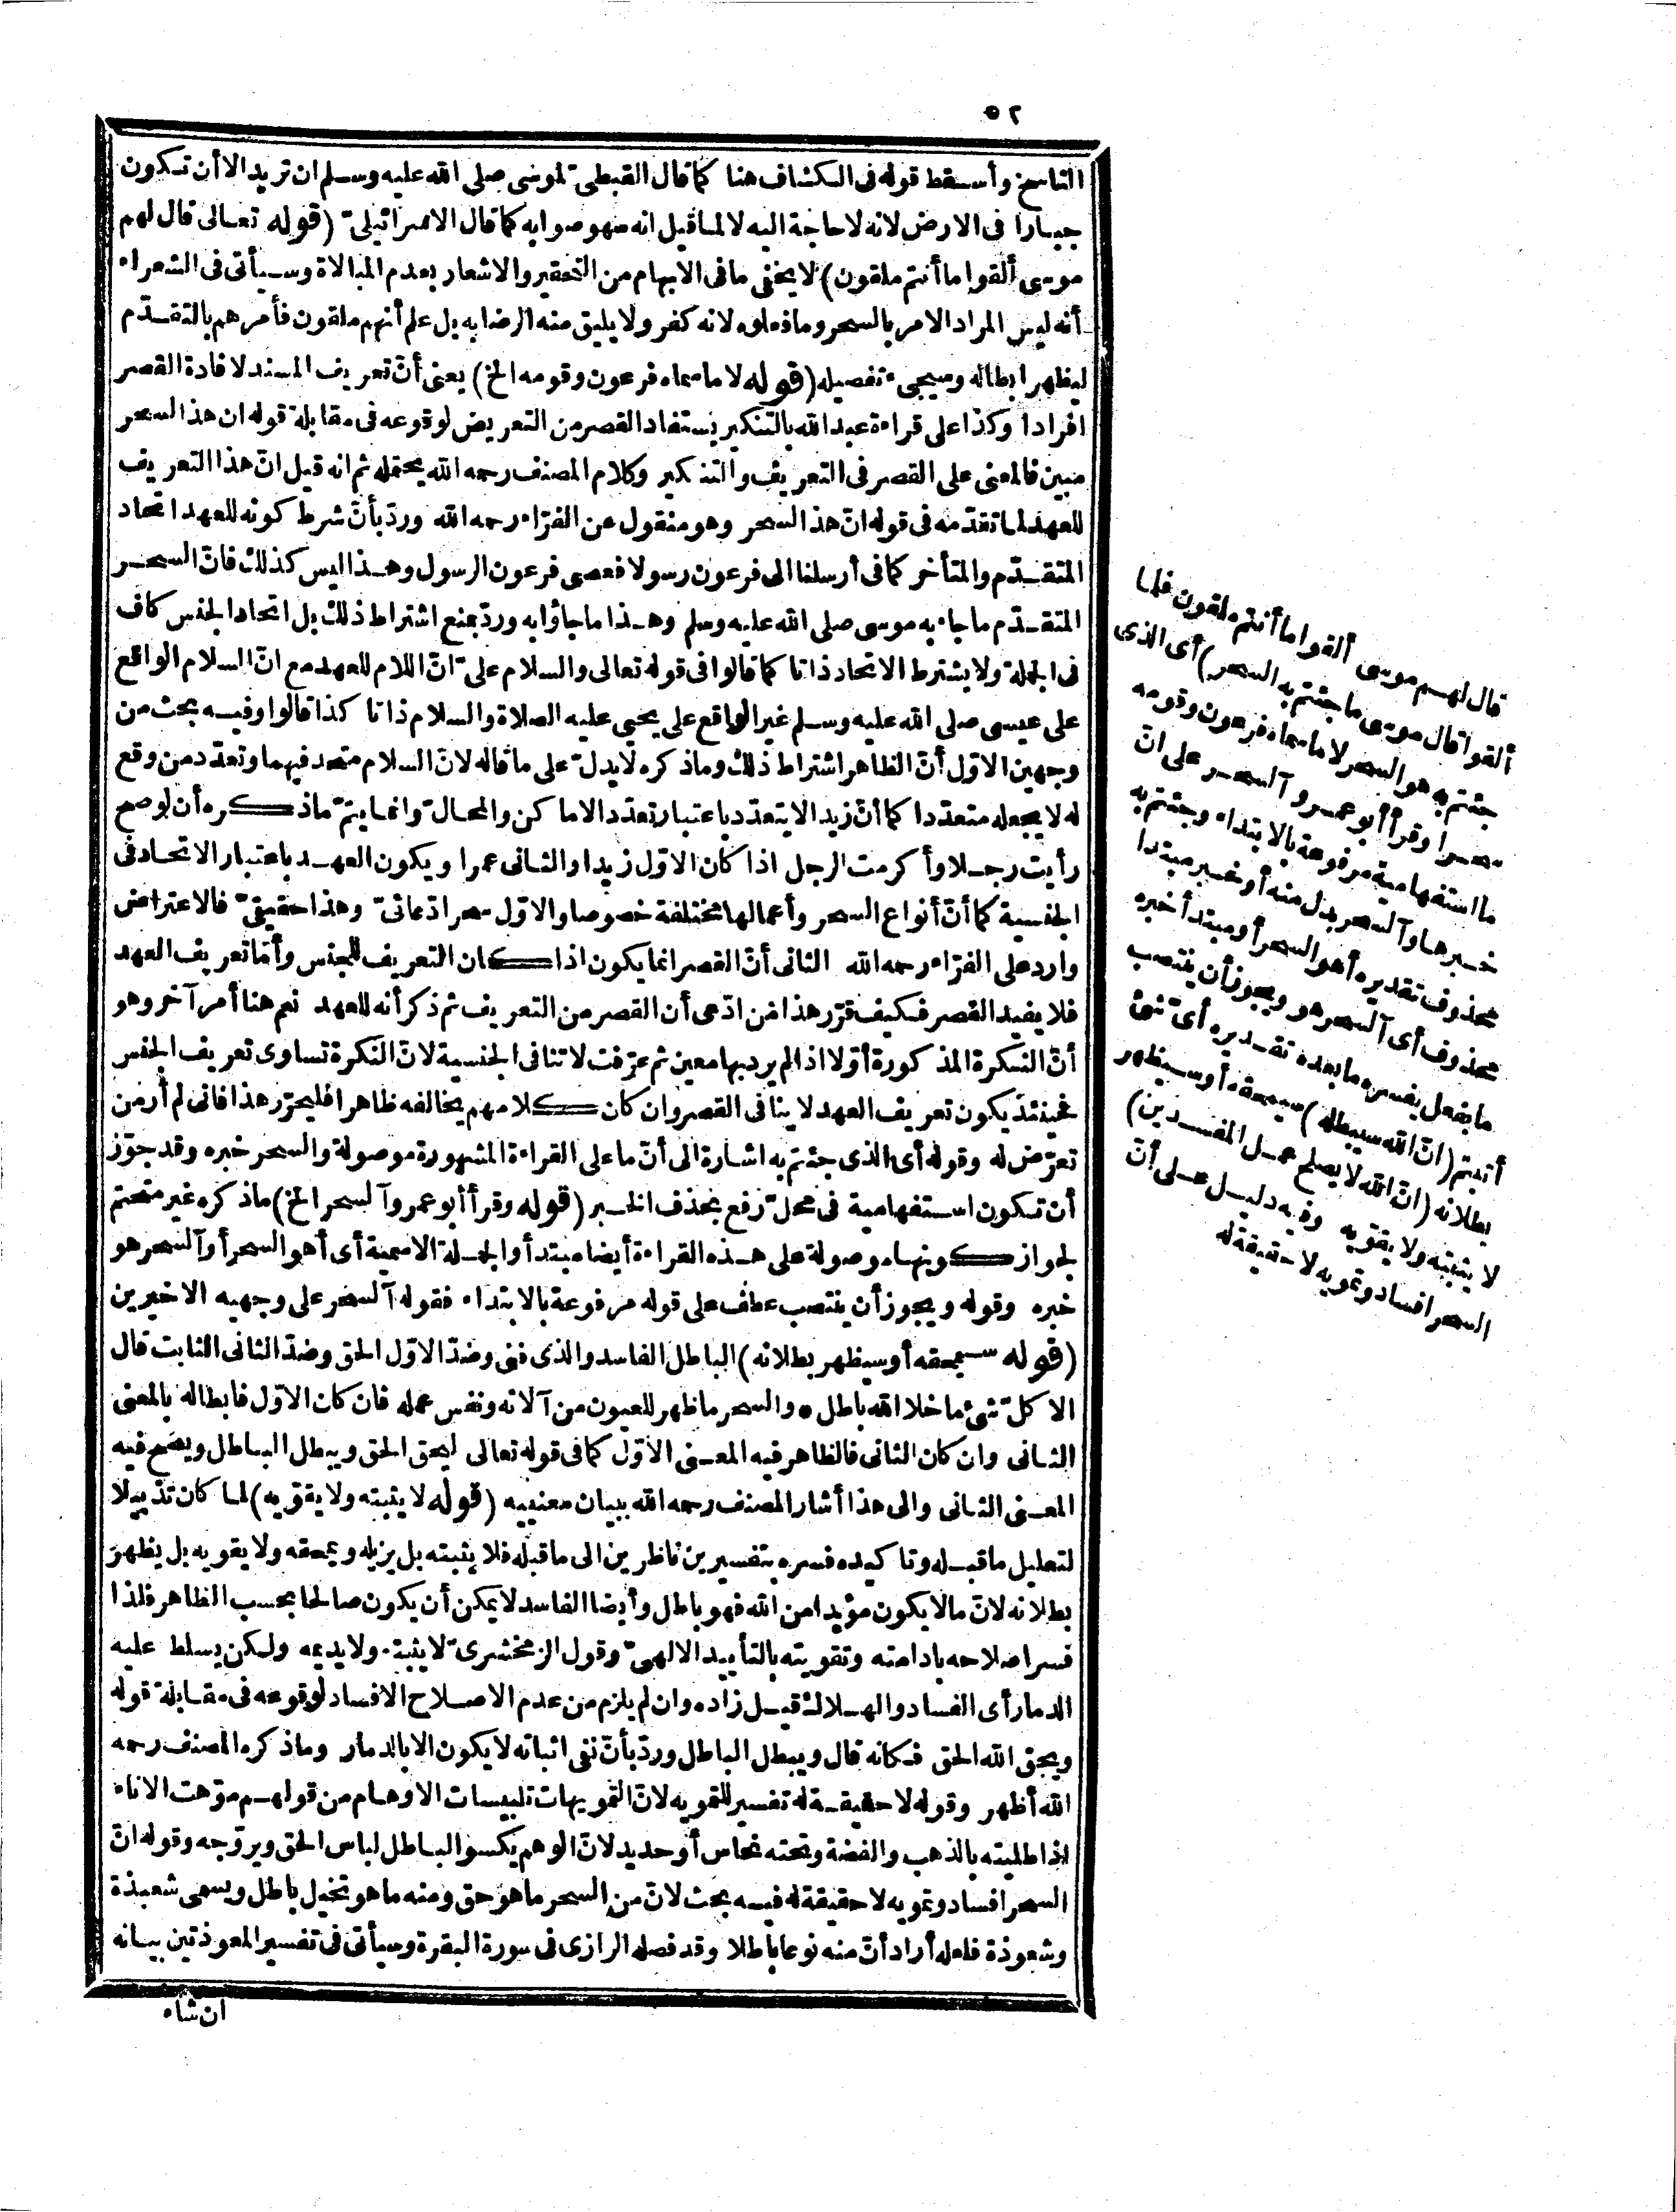 ٥٢
الناسخ وأسقط قوله فى الكشاف هنا كما قال القبطىّ لموسى صلى الله عليه وسلم ان تريد الا أن تكون
جبارا فى الارض لانه لا حاجة اليه لا لما قيل انه سهو صوابه كما قال الاسرائيلىّ (قوله تعالى قال لهم
موسى ألقوا ما أنتم ملقون) لا يخفى ما فى الابهام من التحقير والاشعار بعدم المبالاة وسيأتى فى الشعراء
أنه ليس المراد الامر بالسحر وما فعلوه لانه كفر ولا يليق منه الرضا به بل علم أنهم ملقون فأمرهم بالتقدّم
ليظهر ابطاله وسيجىء تفصيله (قوله لا ما سماه فرعون وقومه الخ) يعنى أنّ تعريف المسند لافادة القصر
افرادا وكذا على قراءة عبد الله بالتنكير يستفاد القصر من التعريض لوقوعه فى مقابلة قوله ان هذا السحر
مبين فالمعنى على القصر فى التعريف والتنكير وكلام المصنف رحمه الله يحتمله ثم انه قيل انّ هذا التعريف
للعهد لما تقدّمه فى قوله انّ هذا السحر وهو منقول عن الفرّاء رحمه الله وردّ بأنّ شرط كونه للعهد اتحاد
المتقدّم والمتأخر كما فى أرسلنا الى فرعون رسولا فعصى فرعون الرسول وهذا ليس كذلك فانّ السحر
المتقدّم ما جاء به موسى صلى الله عليه وسلم وهذا ما جاؤا به وردّ بمنع اشتراط ذلك بل اتحاد الجنس كاف
فى الجملة ولا يشترط الاتحاد ذاتا كما قالوا فى قوله تعالى والسلام علىّ انّ اللام للعهد مع انّ السلام الواقع
على عيسى صلى الله عليه وسلم غير الواقع على يحيى عليه الصلاة والسلام ذاتا كذا قالوا وفيه بحث من
وجهين الاوّل أنّ الظاهر اشتراط ذلك وما ذكره لا يدلّ على ما قاله لانّ السلام متحد فيهما وتعدّد من وقع
له لا يجعله متعدّدا كما أنّ زيدا لا يتعدّد باعتبار تعدّد الاماكن والمحالّ وانما يتمّ ما ذكره أن لو صح
رأيت رجلا وأكرمت الرجل اذا كان الاوّل زيدا والثانى عمرا ويكون العهد باعتبار الاتحاد فى
الجنسية كما أنّ أنواع السحر وأعمالها مختلفة خصوصا والاوّل سحر ادّعائىّ وهذا حقيقىّ فالاعتراض
وارد على الفرّاء رحمه الله الثانى أنّ القصر انما يكون اذا كان التعريف للجنس وأمّا تعريف العهد
فلا يفيد القصر فكيف قرّر هذا من ادّعى أن القصر من التعريف ثم ذكر أنه للعهد نعم هنا أمر آخر وهو
أنّ النكرة المذكورة أوّلا اذا لم يرد بها معين ثم عرّفت لا تنافى الجنسية لانّ النكرة تساوى تعريف الجنس
فحينئذ يكون تعريف العهد لا ينافى القصر وان كان كلامهم يخالفه ظاهرا فليحرّر هذا فانى لم أر من
تعرّض له وقوله أى الذى جئتم به اشارة الى أنّ ما على القراءة المشهورة موصولة والسحر خبره وقد جوّز
أن تكون استفهامية فى محلّ رفع بحذف الخبر (قوله وقرأ أبو عمرو آلسحر الخ) ما ذكره غير متحتم
لجواز كونها موصولة على هذه القراءة أيضا مبتدأ والجملة الاسمية أى أهو السحر أو آلسحر هو
خبره وقوله ويجوز أن ينتصب عطف على قوله مرفوعة بالابتداء فقوله آلسحر على وجهيه الاخيرين
(قوله سيمحقه أو سيظهر بطلانه) الباطل الفاسد والذى فنى وضدّ الاوّل الحق وضدّ الثانى الثابت قال
الا كلّ شئ ما خلا الله باطل * والسحر ما ظهر للعيون من آلاته ونفس عمله فان كان الاوّل فابطاله بالمعنى
الثانى وان كان الثانى فالظاهر فيه المعنى الاوّل كما فى قوله تعالى ليحق الحق ويبطل الباطل ويصح فيه
المعنى الثانى والى هذا أشار المصنف رحمه الله ببيان معنييه (قوله لا يثبته ولا يقوّيه) لما كان تذييلا
لتعليل ما قبله وتأكيده فسره بتفسيرين ناظرين الى ما قبله فلا يثبته بل يزيله ويمحقه ولا يقويه بل يظهر
بطلانه لانّ ما لا يكون مؤيدا من الله فهو باطل وأيضا الفاسد لا يمكن أن يكون صالحا بحسب الظاهر فلذا
فسر اصلاحه بادامته وتقويته بالتأييد الالهىّ وقول الزمخشرىّ لا يثبته ولا يديمه ولكن يسلط عليه
الدمار أى الفساد والهلاك قيل زاده وان لم يلزم من عدم الاصلاح الافساد لوقوعه فى مقابلة قوله
ويحق الله الحق فكانه قال ويبطل الباطل وردّ بأنّ نفى اثباته لا يكون الا بالدمار وما ذكره المصنف رحمه
الله أظهر وقوله لا حقيقة له تفسير للتمويه لانّ التمويهات تلبيسات الاوهام من قولهم موّهت الاناء
اذا طليته بالذهب والفضة وتحته نحاس أو حديد لانّ الوهم يكسو الباطل لباس الحق ويروّجه وقوله انّ
السحر افساد وتمويه لا حقيقة له فيه بحث لانّ من السحر ما هو حق ومنه ما هو تخيل باطل ويسمى شعبذة
وشعوذة فلعله أراد أنّ منه نوعا باطلا وقد فصله الرازى فى سورة البقرة وسيأتى فى تفسير المعوذتين بيانه
ان شاء
قال لهم موسى ألقوا ما أنتم ملقون فلما
ألقوا قال موسى ما جئتم به السحر) أى الذى
جئتم به هو السحر لا ما سماه فرعون وقومه
سحرا وقرأ أبو عمرو آلسحر على انّ
ما استفهامية مرفوعة بالابتداء وجئتم به
خبرها وآلسحر بدل منه أو خبر مبتدا
محذوف تقديره أهو السحر أو مبتدأ خبره
محذوف أى آلسحر هو ويجوز أن ينتصب
ما بفعل يفسره ما بعده تقديره أىّ شئ
أتيتم (انّ الله سيبطله) سيمحقه أو سيظهر
بطلانه (انّ الله لا يصلح عمل المفسدين)
لا يثبته ولا يقويه وفيه دليل على أنّ
السحر افساد وتمويه لا حقيقة له